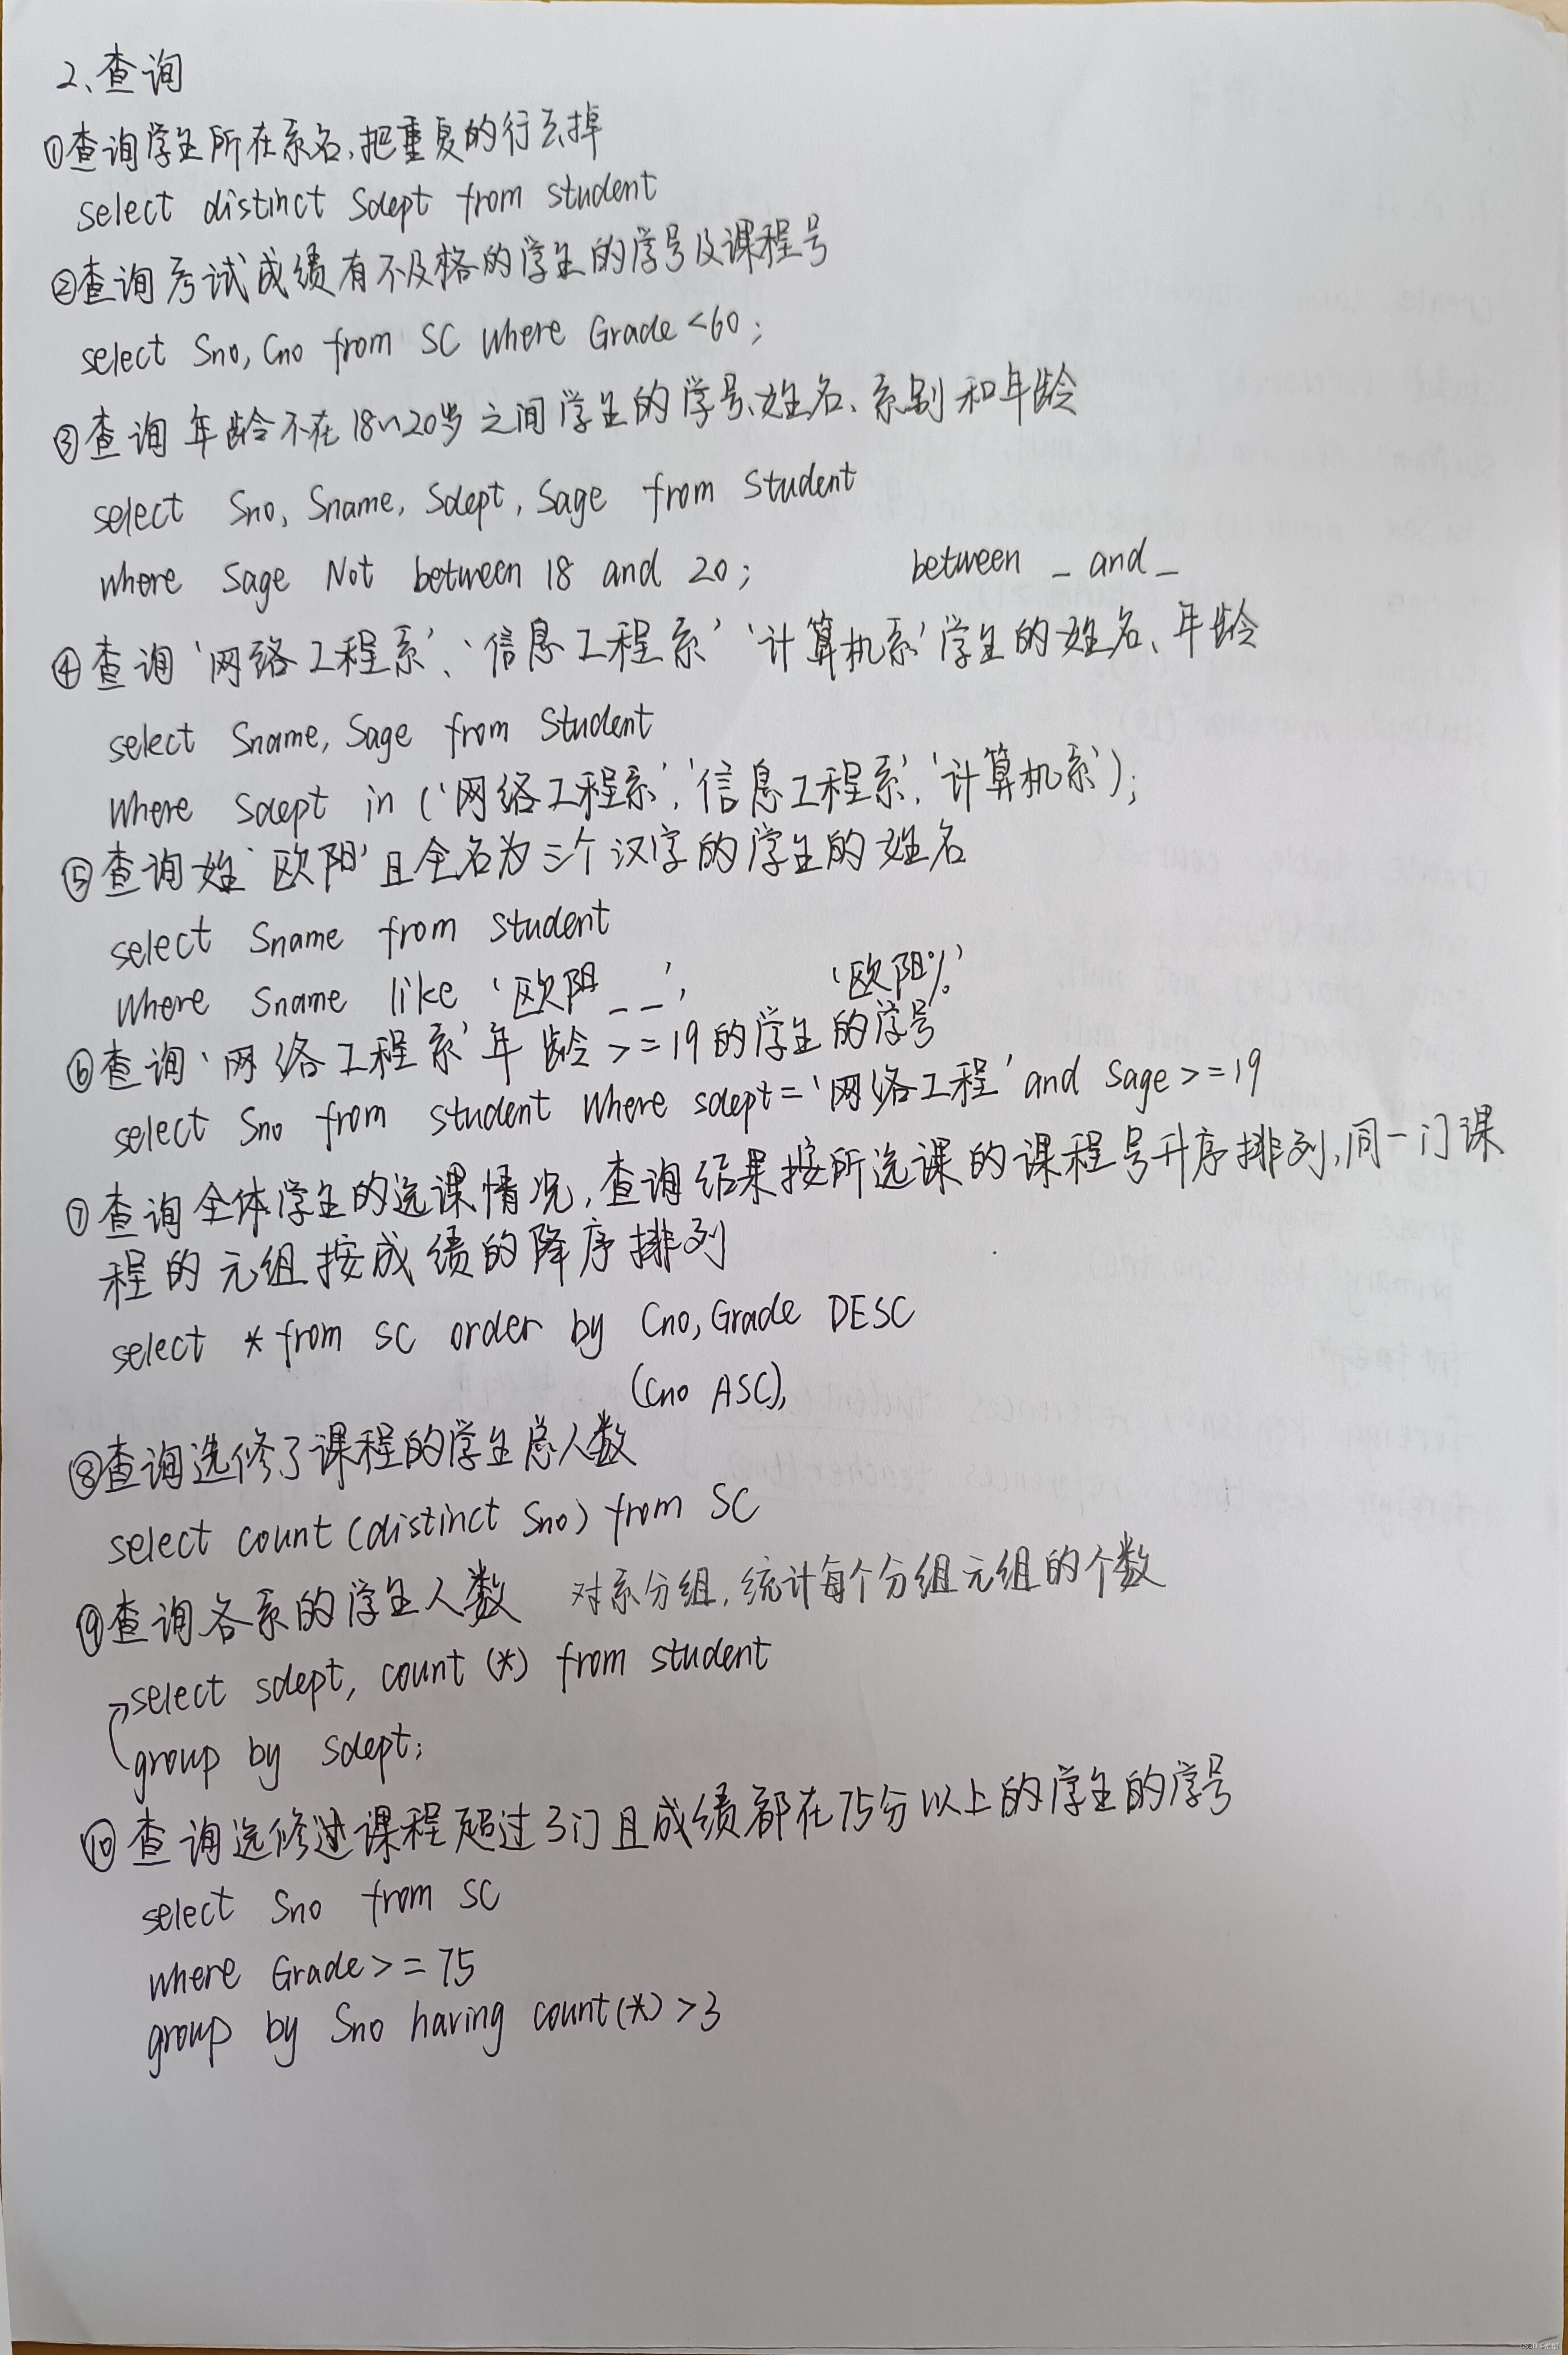 2、查询
①查询学生所在系名,把重复的行去掉
select distinct Sdept from student
②查询考试成绩有不及格的学生的学号及课程号
select Sno, Cno from SC where Grade <60;
③查询年龄不在18~20岁之间学生的学号、姓名、系别和年龄
select Sno, Sname, Sdept, Sage from Student
where Sage Not between 18 and 20; between _ and _
④查询'网络工程系'、'信息工程系' '计算机系'学生的姓名、年龄
select Sname, Sage from Student
where Sdept in ('网络工程系', '信息工程系', '计算机系');
⑤查询姓'欧阳'且全名为三个汉字的学生的姓名
select Sname from student
where Sname like '欧阳_ _' '欧阳%'
⑥查询'网络工程系'年龄>=19的学生的学号
select Sno from student where sdept='网络工程' and Sage>=19
⑦查询全体学生的选课情况,查询结果按所选课的课程号升序排列,同一门课
程的元组按成绩的降序排列
select * from SC order by Cno, Grade DESC
(Cno ASC),
⑧查询选修了课程的学生总人数
select count (distinct Sno) from SC
⑨查询各系的学生人数 对系分组,统计每个分组元组的个数
select sdept, count (*) from student
group by sdept;
⑩查询选修过课程超过3门且成绩都在75分以上的学生的学号
select Sno from SC
where Grade>=75
group by Sno having count(*) >3